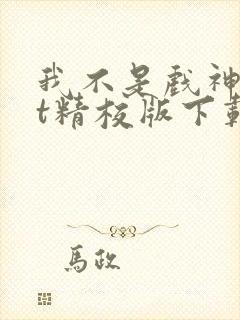 我不是戏神
t精校版下载
馬政